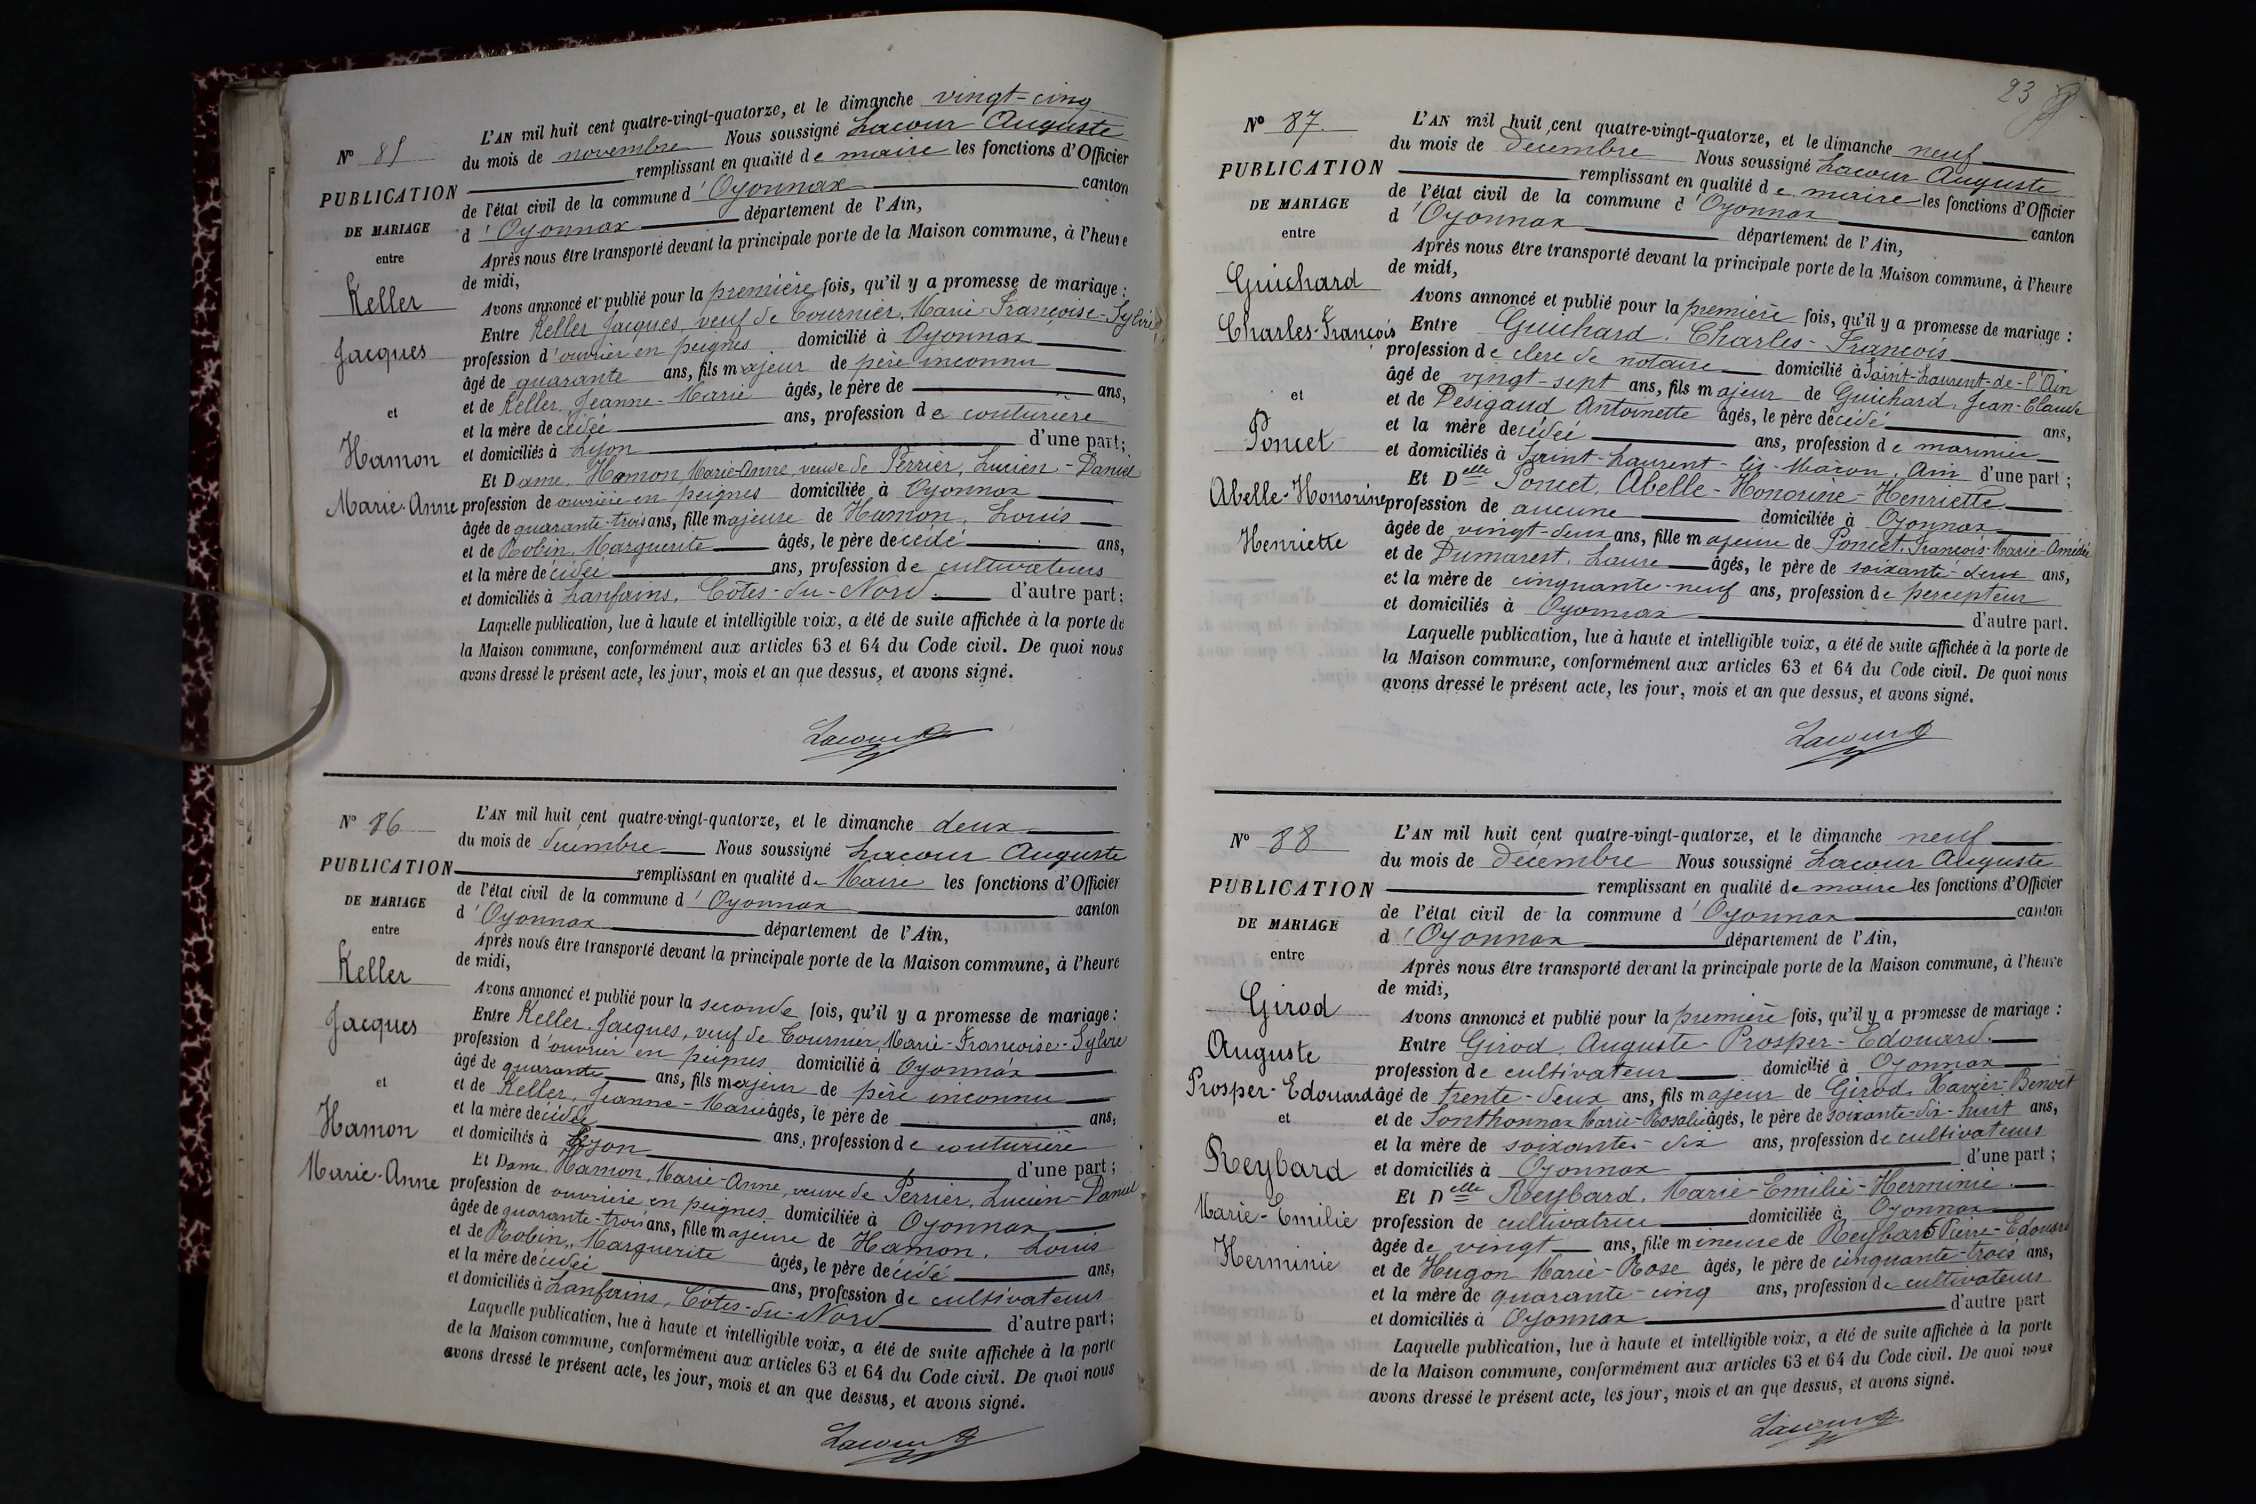 N° 85
PUBLICATION
DE MARIAGE
entre
Keller
Jacques
et
Hamon
Marie-Anne
L'AN mil huit cent quatre-vingt-quatorze, et le dimanche vingt-cinq
du mois de novembre Nous soussigné Lacour Auguste
remplissant en qualité de maire les fonctions d'Officier
de l'état civil de la commune d'Oyonnax canton
d'Oyonnax département de l'Ain,
Après nous être transporté devant la principale porte de la Maison commune, à l'heure
de midi,
Avons annoncé et publié pour la première fois, qu'il y a promesse de mariage :
Entre Keller Jacques, veuf de Tournier, Marie-Françoise-Sylvie
profession d'ouvrier en peignes domicilié à Oyonnax
âgé de quarante ans, fils majeur de père inconnu
et de Keller, Jeanne-Marie âgés, le père de ans,
et la mère décédée ans, profession de couturière
et domiciliés à Lyon d'une part;
Et Dame Hamon, Marie-Anne, veuve de Perrier, Lucien-Daniel
profession de ouvrière en peignes domiciliée à Oyonnax
âgée de quarante-trois ans, fille majeure de Hamon, Louis
et de Robin, Marguerite âgés, le père décédé ans,
et la mère décédée ans, profession de cultivateurs
et domiciliés à Lanfains, Côtes-du-Nord d'autre part;
Laquelle publication, lue à haute et intelligible voix, a été de suite affichée à la porte de
la Maison commune, conformément aux articles 63 et 64 du Code civil. De quoi nous
avons dressé le présent acte, les jour, mois et an que dessus, et avons signé.
Lacour
N° 86
PUBLICATION
DE MARIAGE
entre
Keller
Jacques
et
Hamon
Marie-Anne
L'AN mil huit cent quatre-vingt-quatorze, et le dimanche deux
du mois de décembre Nous soussigné Lacour Auguste
remplissant en qualité de Maire les fonctions d'Officier
de l'état civil de la commune d'Oyonnax canton
d'Oyonnax département de l'Ain,
Après nous être transporté devant la principale porte de la Maison commune, à l'heure
de midi,
Avons annoncé et publié pour la seconde fois, qu'il y a promesse de mariage :
Entre Keller, Jacques, veuf de Tournier, Marie-Françoise-Sylvie
profession d'ouvrier en peignes domicilié à Oyonnax
âgé de quarante ans, fils majeur de père inconnu
et de Keller, Jeanne-Marie âgés, le père de ans,
et la mère décédée ans, profession de couturière
et domiciliés à Lyon d'une part;
Et Dame Hamon, Marie-Anne, veuve de Perrier, Lucien-Daniel
profession de ouvrière en peignes domiciliée à Oyonnax
âgée de quarante-trois ans, fille majeure de Hamon, Louis
et de Robin, Marguerite âgés, le père décédé ans,
et la mère décédée ans, profession de cultivateurs
et domiciliés à Lanfains, Côtes-du-Nord d'autre part;
Laquelle publication, lue à haute et intelligible voix, a été de suite affichée à la porte
de la Maison commune, conformément aux articles 63 et 64 du Code civil. De quoi nous
avons dressé le présent acte, les jour, mois et an que dessus, et avons signé.
Lacour
23
N° 87
PUBLICATION
DE MARIAGE
entre
Guichard
Charles-François
et
Poncet
Abelle-Honorine
Henriette
L'AN mil huit cent quatre-vingt-quatorze, et le dimanche neuf
du mois de décembre Nous soussigné Lacour Auguste
remplissant en qualité de maire les fonctions d'Officier
de l'état civil de la commune d'Oyonnax canton
d'Oyonnax département de l'Ain,
Après nous être transporté devant la principale porte de la Maison commune, à l'heure
de midi,
Avons annoncé et publié pour la première fois, qu'il y a promesse de mariage :
Entre Guichard, Charles-François
profession de clerc de notaire domicilié à Saint-Laurent-de-l'Ain
âgé de vingt-sept ans, fils majeur de Guichard, Jean-Claude
et de Desigaud Antoinette âgés, le père décédé ans,
et la mère décédée ans, profession de marinier
et domiciliés à Saint-Laurent-lès-Macon, Ain d'une part;
Et Delle Poncet, Abelle-Honorine-Henriette
profession de aucune domiciliée à Oyonnax
âgée de vingt-deux ans, fille majeure de Poncet, François-Marie-Amédée
et de Dumarest, Laure âgés, le père de soixante-deux ans,
et la mère de cinquante-neuf ans, profession de percepteur
et domiciliés à Oyonnax d'autre part.
Laquelle publication, lue à haute et intelligible voix, a été de suite affichée à la porte de
la Maison commune, conformément aux articles 63 et 64 du Code civil. De quoi nous
avons dressé le présent acte, les jour, mois et an que dessus, et avons signé.
Lacour
N° 88
PUBLICATION
DE MARIAGE
entre
Girod
Auguste
Prosper-Edouard
et
Reybard
Marie-Emilie
Herminie
L'AN mil huit cent quatre-vingt-quatorze, et le dimanche neuf
du mois de décembre Nous soussigné Lacour Auguste
remplissant en qualité de maire les fonctions d'Officier
de l'état civil de la commune d'Oyonnax canton
d'Oyonnax département de l'Ain,
Après nous être transporté devant la principale porte de la Maison commune, à l'heure
de midi,
Avons annoncé et publié pour la première fois, qu'il y a promesse de mariage :
Entre Girod, Auguste-Prosper-Edouard
profession de cultivateur domicilié à Oyonnax
âgé de trente-deux ans, fils majeur de Girod, Xavier-Benoît
et de Sonthonnax Marie-Rosalie âgés, le père de soixante-dix-huit ans,
et la mère de soixante-dix ans, profession de cultivateurs
et domiciliés à Oyonnax d'une part;
Et Delle Reybard, Marie-Emilie-Herminie
profession de cultivatrice domiciliée à Oyonnax
âgée de vingt ans, fille mineure de Reybard Pierre-Edouard
et de Hugon Marie-Rose âgés, le père de cinquante-trois ans,
et la mère de quarante-cinq ans, profession de cultivateurs
et domiciliés à Oyonnax d'autre part
Laquelle publication, lue à haute et intelligible voix, a été de suite affichée à la porte
de la Maison commune, conformément aux articles 63 et 64 du Code civil. De quoi nous
avons dressé le présent acte, les jour, mois et an que dessus, et avons signé.
Lacour